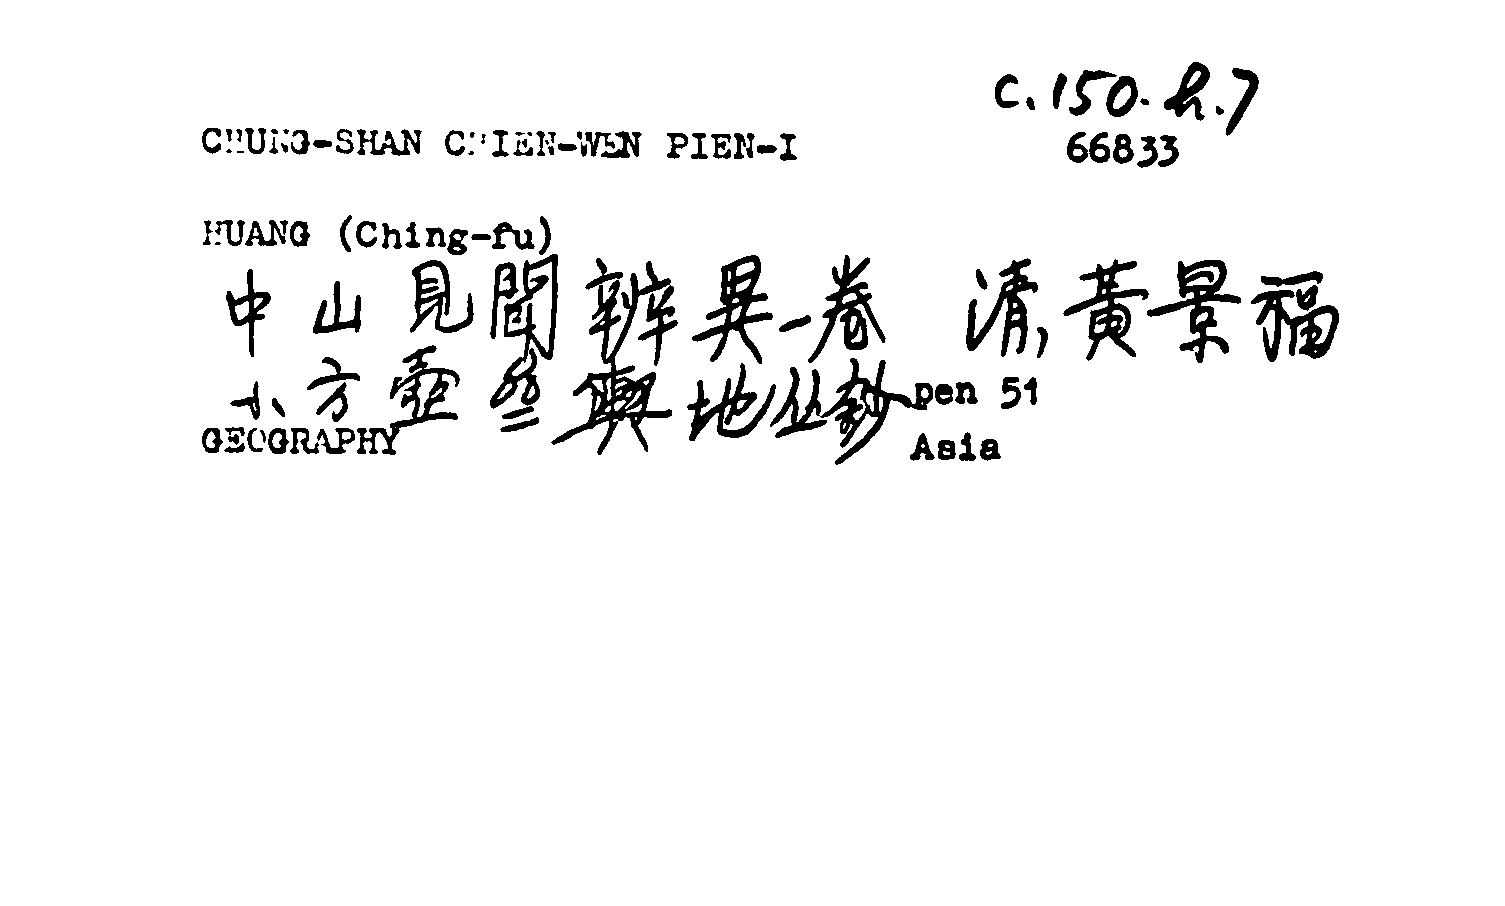 C.150.h.7
CHUNG-SHAN CHIEN-WEN PIEN-I 66833
HUANG (Ching-fu)
中山見聞辨異一卷 清,黃景福
小方壺叅輿地丛鈔 pen 51
GEOGRAPHY Asia